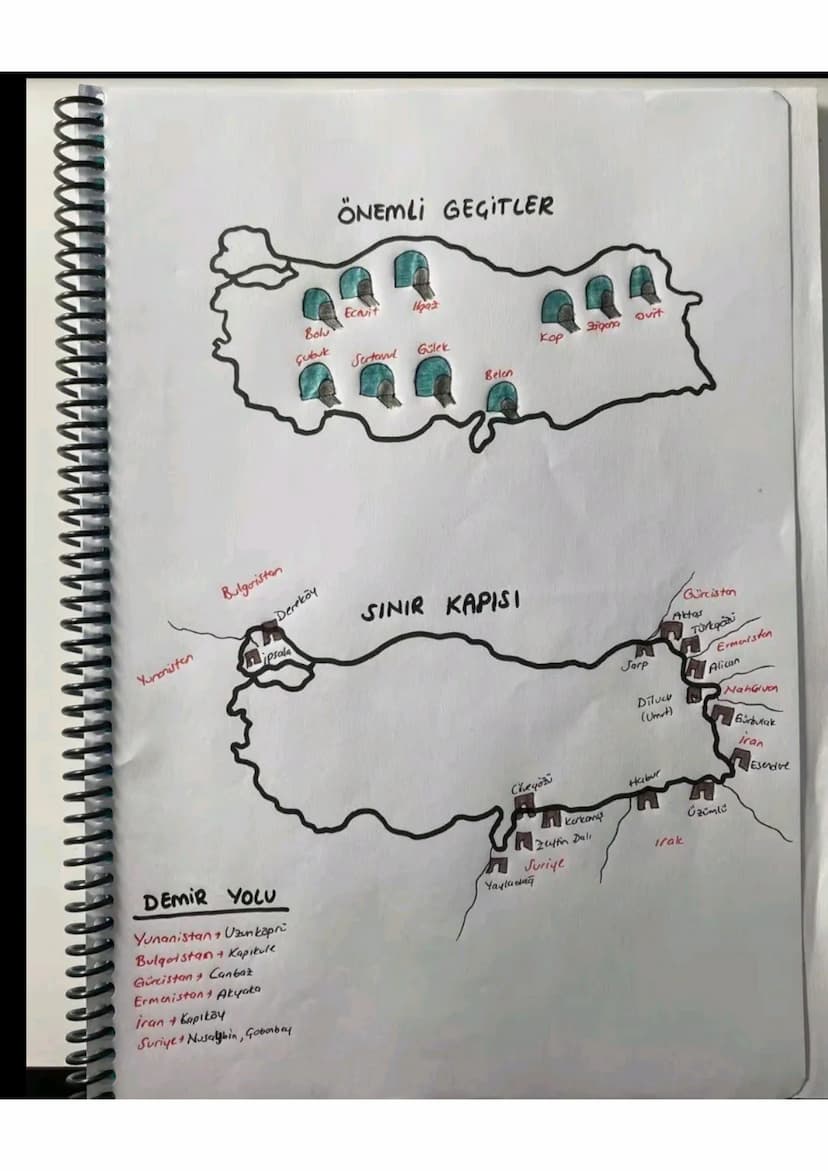 ÖNEMLİ GEÇİTLER
Bolu
Ecevit
Ilgaz
Kop
Zigana
Ovit
Çubuk
Sertavul
Gülek
Belen
SINIR KAPISI
Bulgaristan
Dereköy
Yunanistan
İpsala
Gürcistan
Aktaş
Türkgözü
Ermenistan
Sarp
Alican
Nahcivan
Dilucu
(Umut)
Gürbulak
İran
Esendere
Habur
Üzümlü
Irak
Cilvegözü
Karkamış
Zeytin Dalı
Suriye
Yayladağ
DEMİR YOLU
Yunanistan → Uzunköprü
Bulgaristan → Kapıkule
Gürcistan → Canbaz
Ermenistan → Akyaka
İran → Kapıköy
Suriye → Nusaybin, Çobanbey